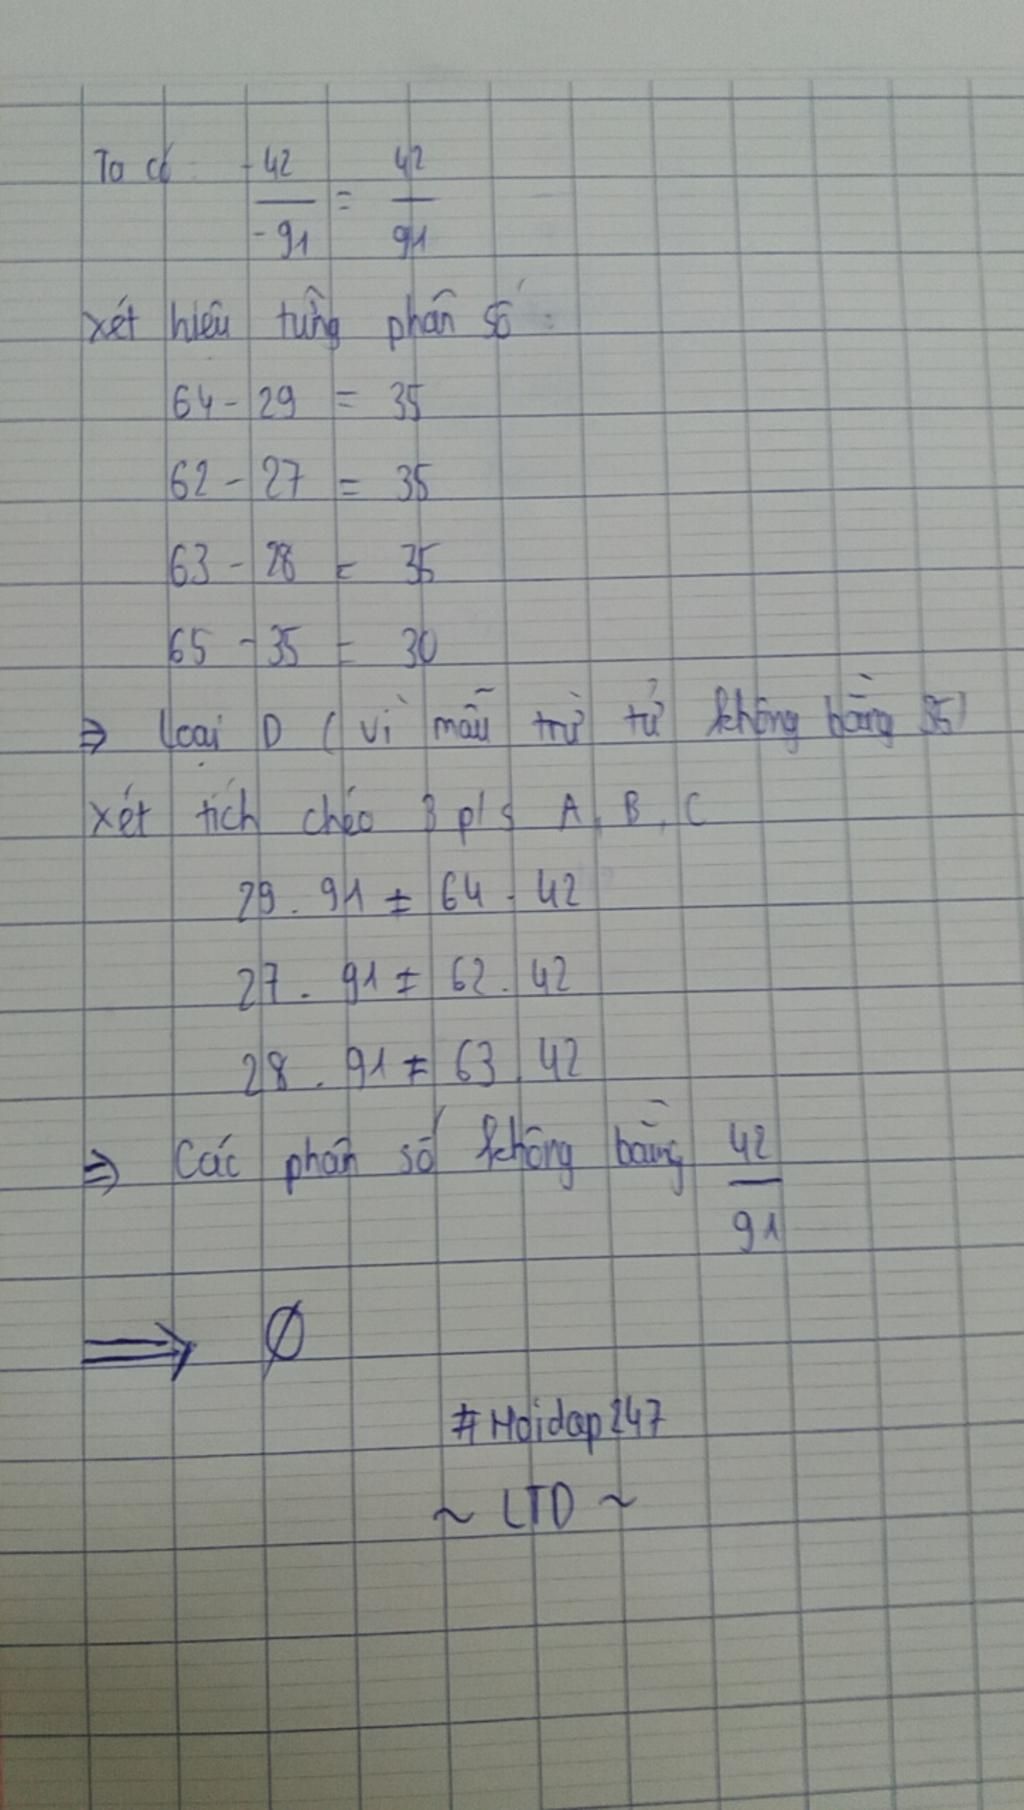 Ta có -42/-91 = 42/91
xét hiệu từng phân số :
64 - 29 = 35
62 - 27 = 35
63 - 28 = 35
65 - 35 = 30
⇒ loại D ( vì mẫu trừ tử không bằng 35)
xét tích chéo 3 p/s A, B, C
29 . 91 ≠ 64 . 42
27 . 91 ≠ 62 . 42
28 . 91 ≠ 63 . 42
⇒ Các phân số không bằng 42/91
⇒ Ø
#Hoidap247
~ LTD ~